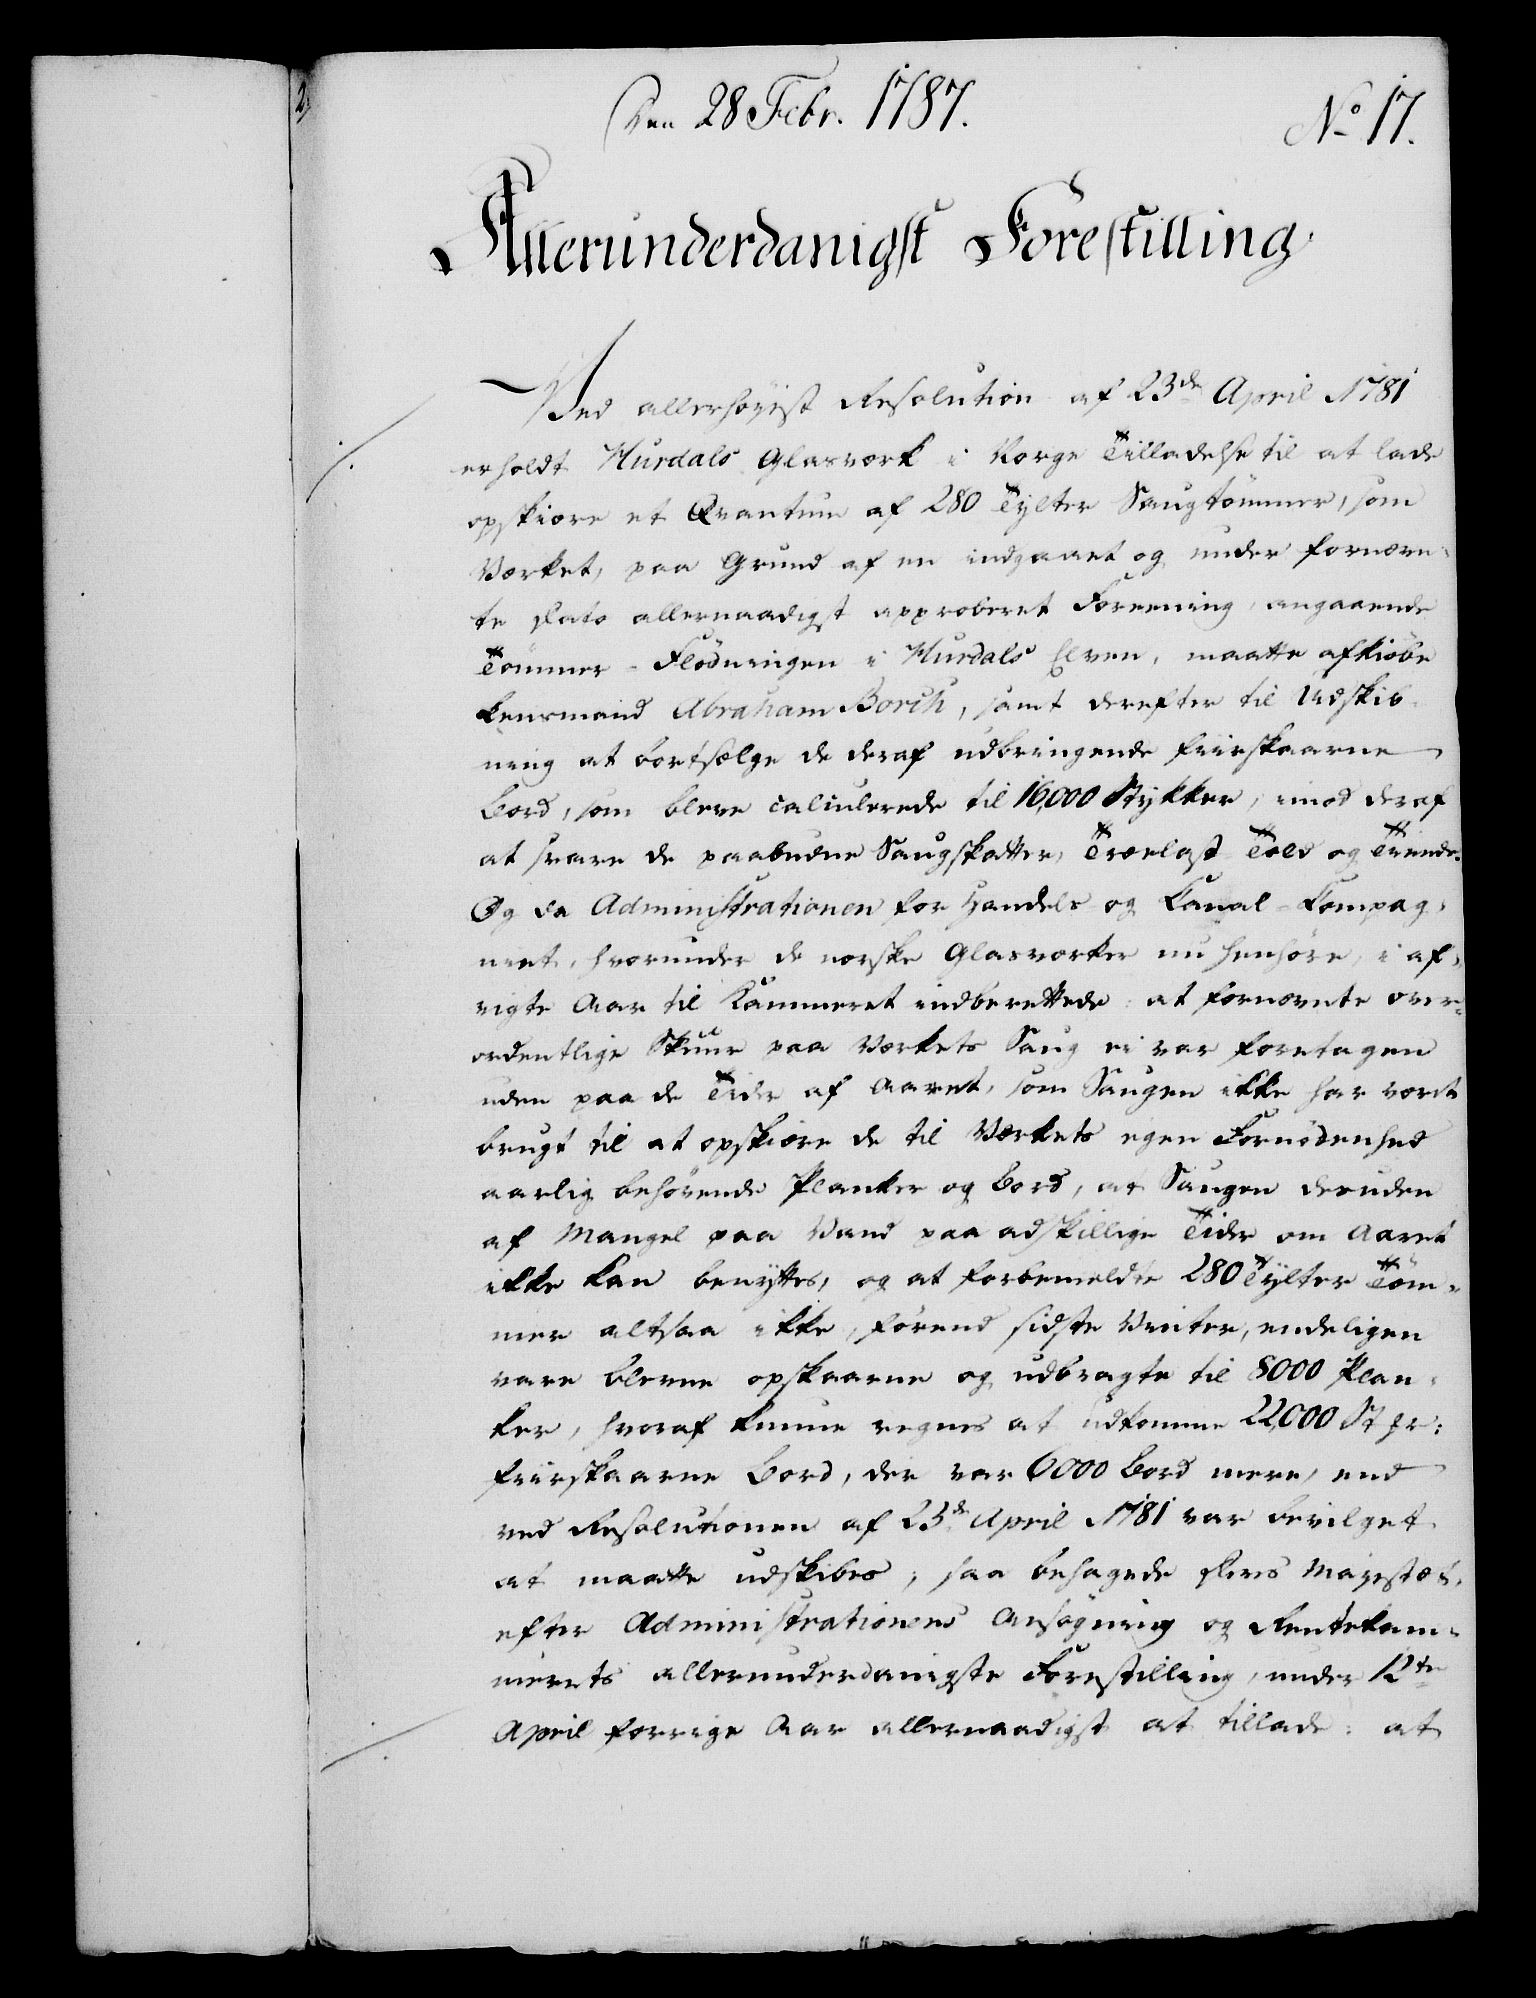 Den 28 Febr. 1787.
No 17.
Allerunderdanigst Forestilling
Ved allerhøyist Resolution af 23de April 1781
erholdt Hurdals Glasværk i Norge Tilladelse til at lade
opskiære et Qvantum af 280 Tylter Saugtømmer, som
Værket, paa Grund af en indgaaet og under fornævn-
te Dato allernaadigst approberet Foreening, angaaende
Tømmer-Flødningen i Hurdals Elven, maatte afkiøbe
Lensmand Abraham Borch, samt derefter til Udskib-
ning at bortsælge de deraf udbringende friirskaarne
Bord, som bleve calculerede til 16,000 Stykker, imod deraf
at svare de paabudne Saugskatter, Trælast Told og Tiende.
Og da Administrationen for Handels og Kanal-Kompag-
niet, hvorunder de norske Glasværker nu henhøre, i af-
vigte Aar til Kammeret indberettede: at fornævnte over-
ordentlige Skuur paa Værkets Saug ei var foretagen
uden paa de Tider af Aaret, som Saugen ikke har været
brugt til at opskiære de til Værkets egen Fornødenhed
aarlig behøvende Planker og Bord, at Saugen desuden
af Mangel paa Vand paa adskillige Tider om Aaret
ikke kan benyttes, og at forbemeldte 280 Tylter Töm-
mer altsaa ikke, førend sidste Vinter, endeligen
vare blevne opskaarne og udbragte til 8000 Plan-
ker, hvoraf kunne regnes at udkomme 22,000 St
friirskaarne Bord, der var 6000 Bord mere, end
ved Resolutionen af 23de April 1781 var bevilget
at maatte udskibes; saa behagede Deres Majestæt,
efter Administrationens Ansøgning og Rentekam-
merets allerunderdanigste Forestilling, under 12te
April forrige Aar allernaadigst at tillade: at